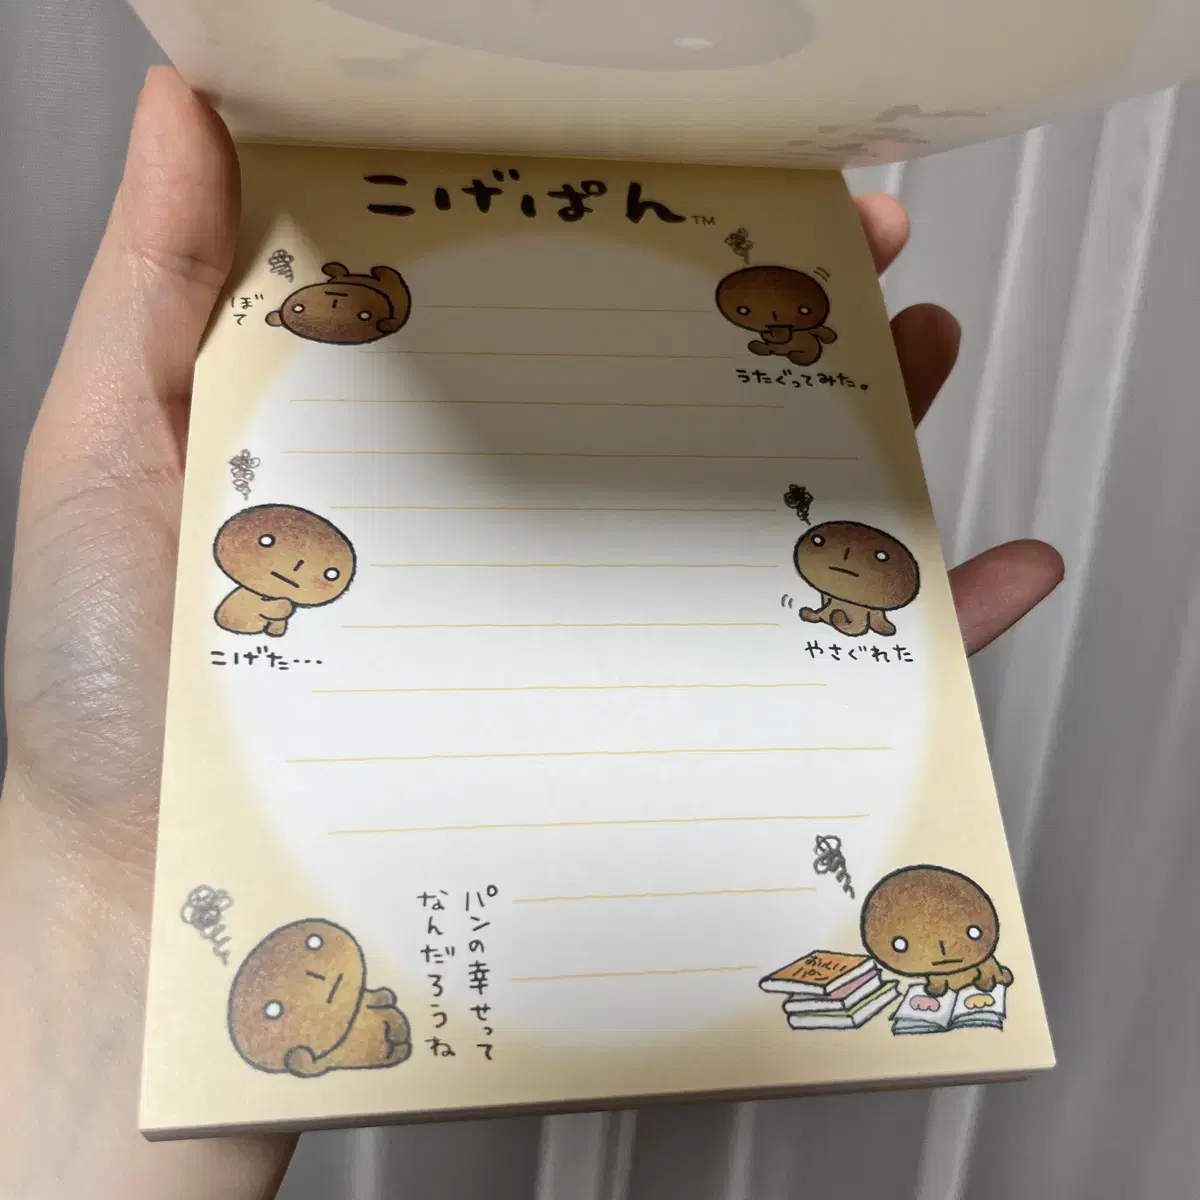 こげぱん™
ぼて
うたぐってみた。
こげた…
やさぐれた
パンの幸せって
なんだろうね
おいしいパン